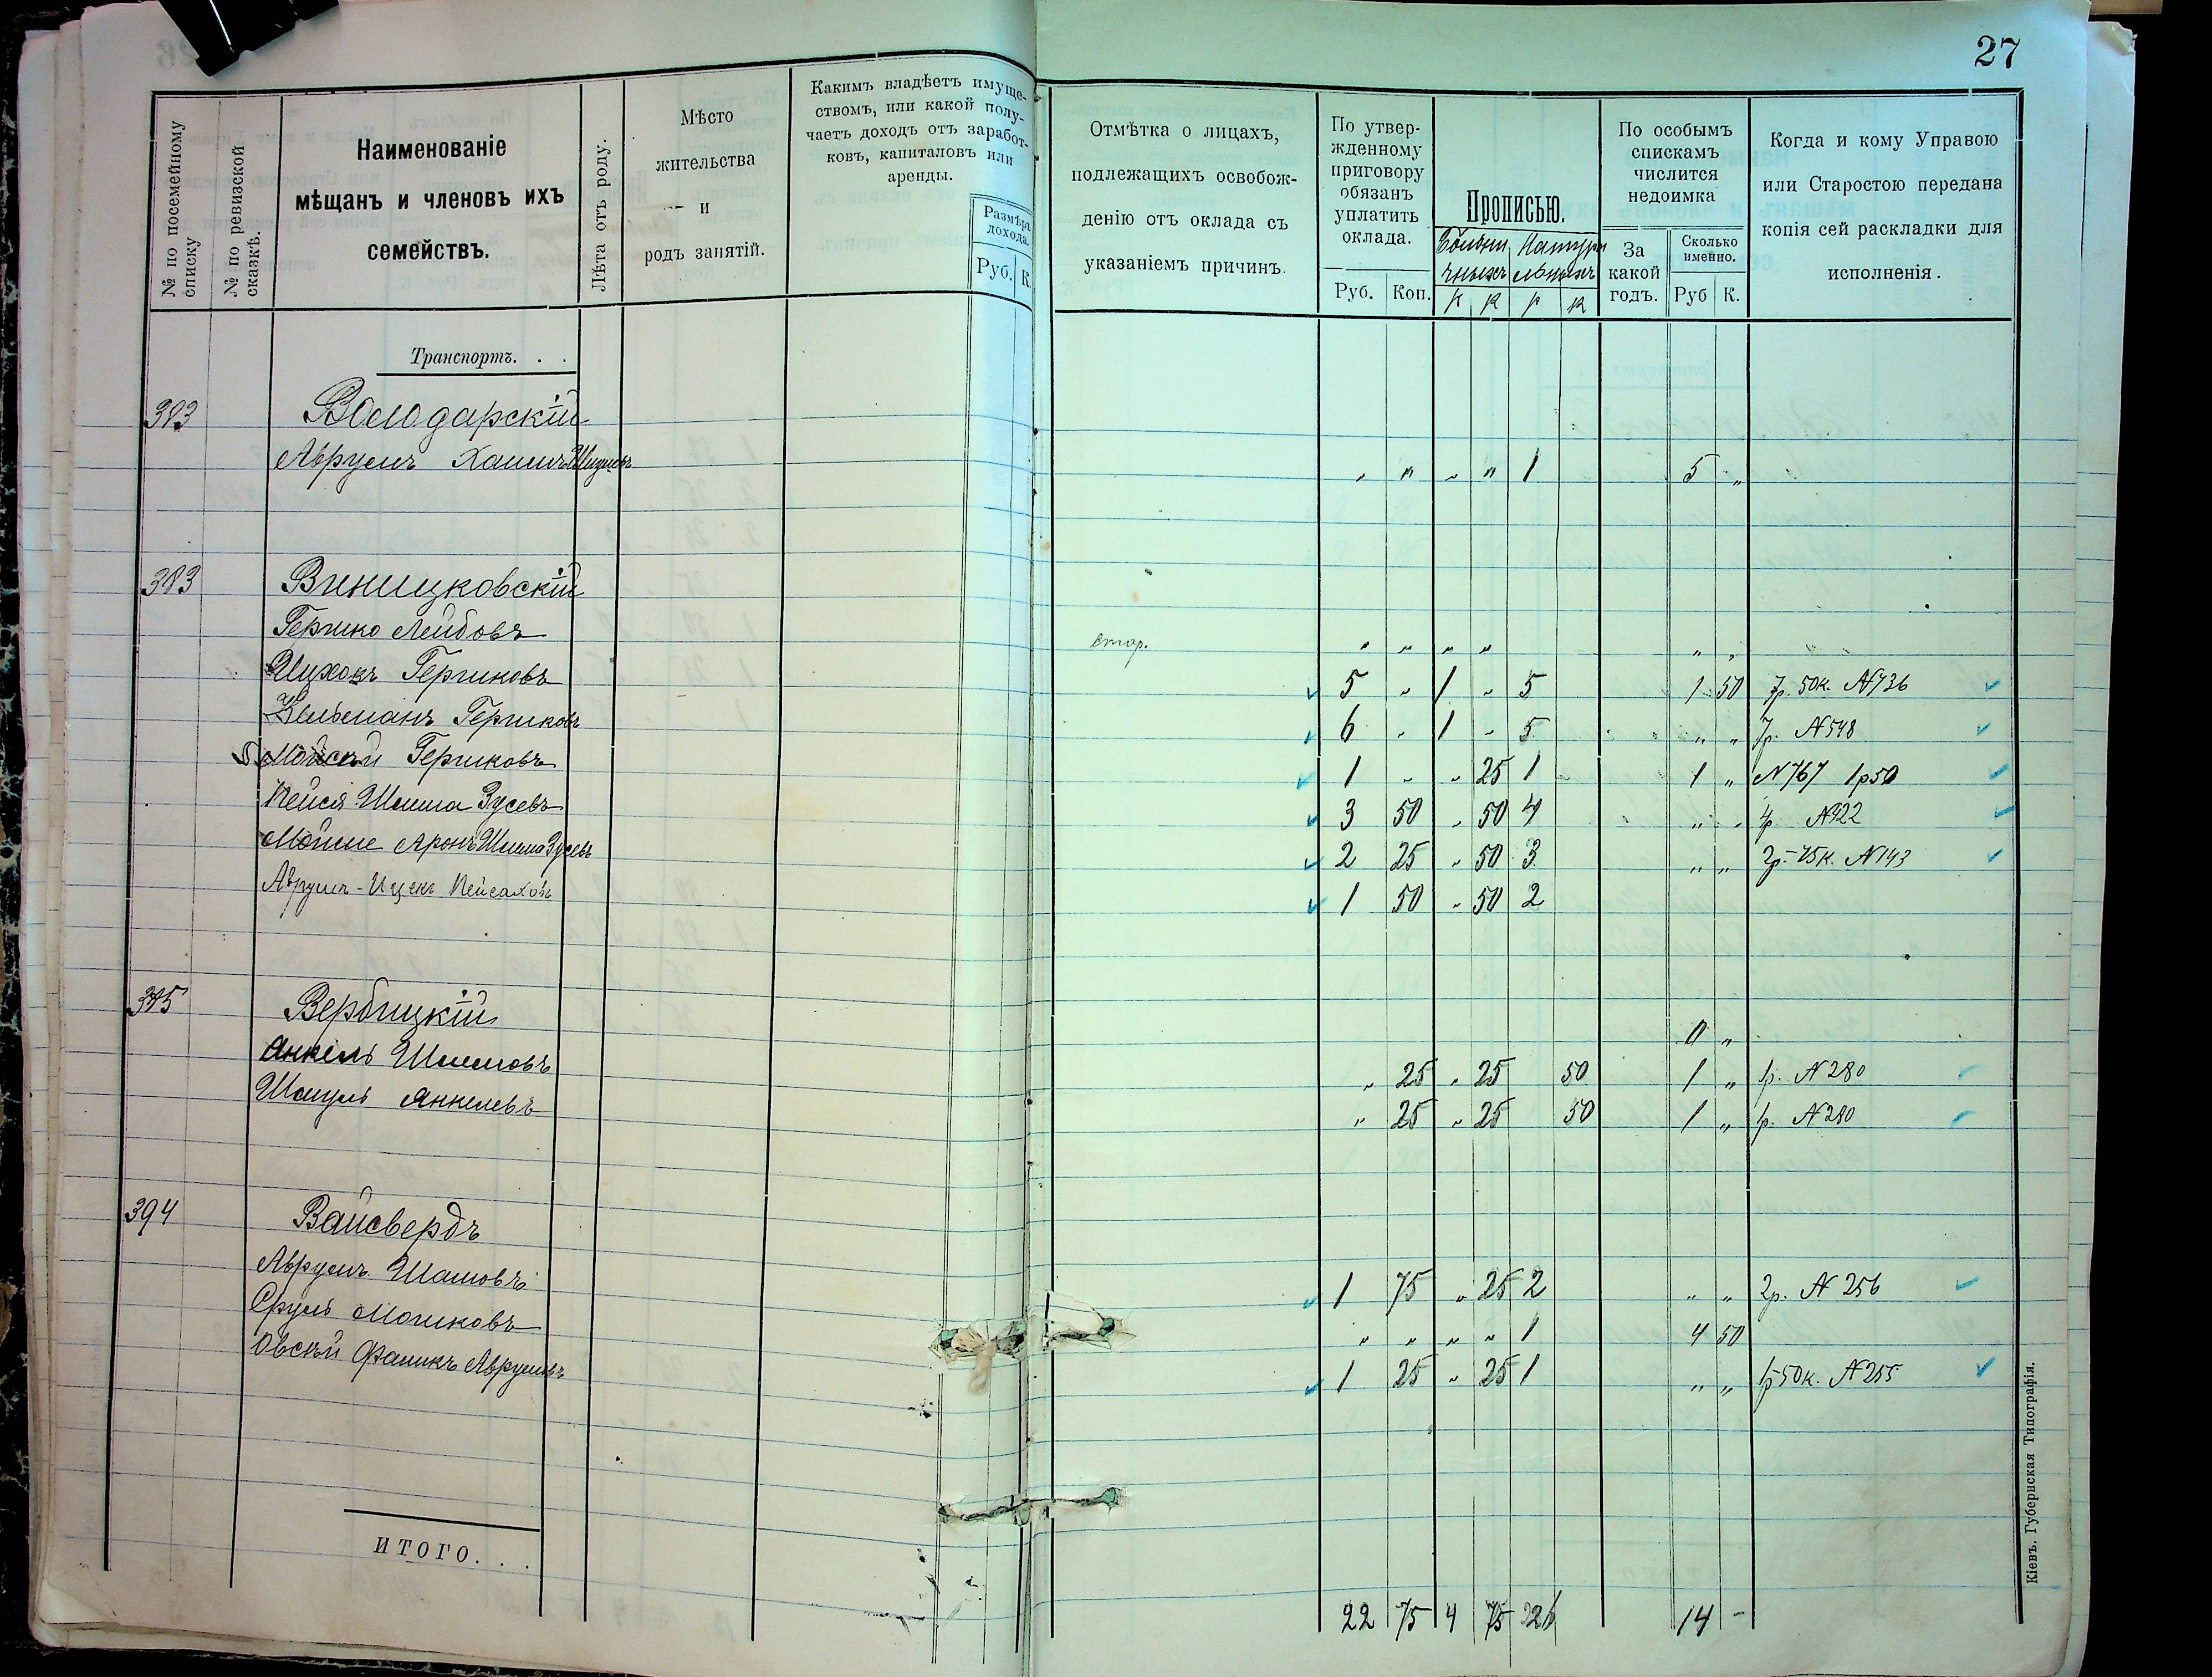 27
№ по посемейному списку
№ по ревизской сказкѣ.
Наименованіе
мѣщанъ и членовъ ихъ
семействъ.
Лѣта отъ роду.
Мѣсто
жительства
и
родъ занятій.
Какимъ владѣетъ имуще-
ствомъ, или какой полу-
чаетъ доходъ отъ заработ-
ковъ, капиталовъ или
аренды.
Размѣръ
дохода.
Руб. К.
Отмѣтка о лицахъ,
подлежащихъ освобож-
денію отъ оклада съ
указаніемъ причинъ.
По утвер-
жденному
приговору
обязанъ
уплатить
оклада.
Руб. Коп.
Прописью.
р к р к
По особымъ
спискамъ
числится
недоимка
За
какой
годъ.
Сколько
именно.
Руб К.
Когда и кому Управою
или Старостою передана
копія сей раскладки для
исполненія.
Транспортъ. . .
383 Володарскій
Аврумъ Хаимъ " " " " 1 5 "
383 Виницковскій
Гершко Лейбовъ стар. " " " " " "
Ицхокъ Гершковъ 5 " 1 " 5 1 50 7р. 50к. №736
Кельманъ Гершковъ 6 " 1 " 5 " " 7р. №548
Мойсей Гершковъ 1 " " 25 1 1 " №767 1р50
Пейся Шлима Зусевъ 3 50 " 50 4 " " 4р №922
Мойше Аронъ Шлима Зусевъ 2 25 " 50 3 " " 2р.75к. №143
Аврумъ-Ицекъ Пейсаховъ 1 50 " 50 2
385 Вербицкій
0 "
Янкель Шлемовъ " 25 " 25 50 1 " 1р. №280
Шмуль Янкелевъ " 25 " 25 50 1 " 1р. №280
394 Вайсвердъ
Аврумъ 1 75 " 25 2 " " 2р. №256
Сруль Мошковъ " " " " 1 4 50
Овсей Фаликъ Аврумовъ 1 25 " 25 1 " " 1р50к. №255
ИТОГО. . .
22 75 4 75 14 -
Кіевъ. Губернская Типографія.